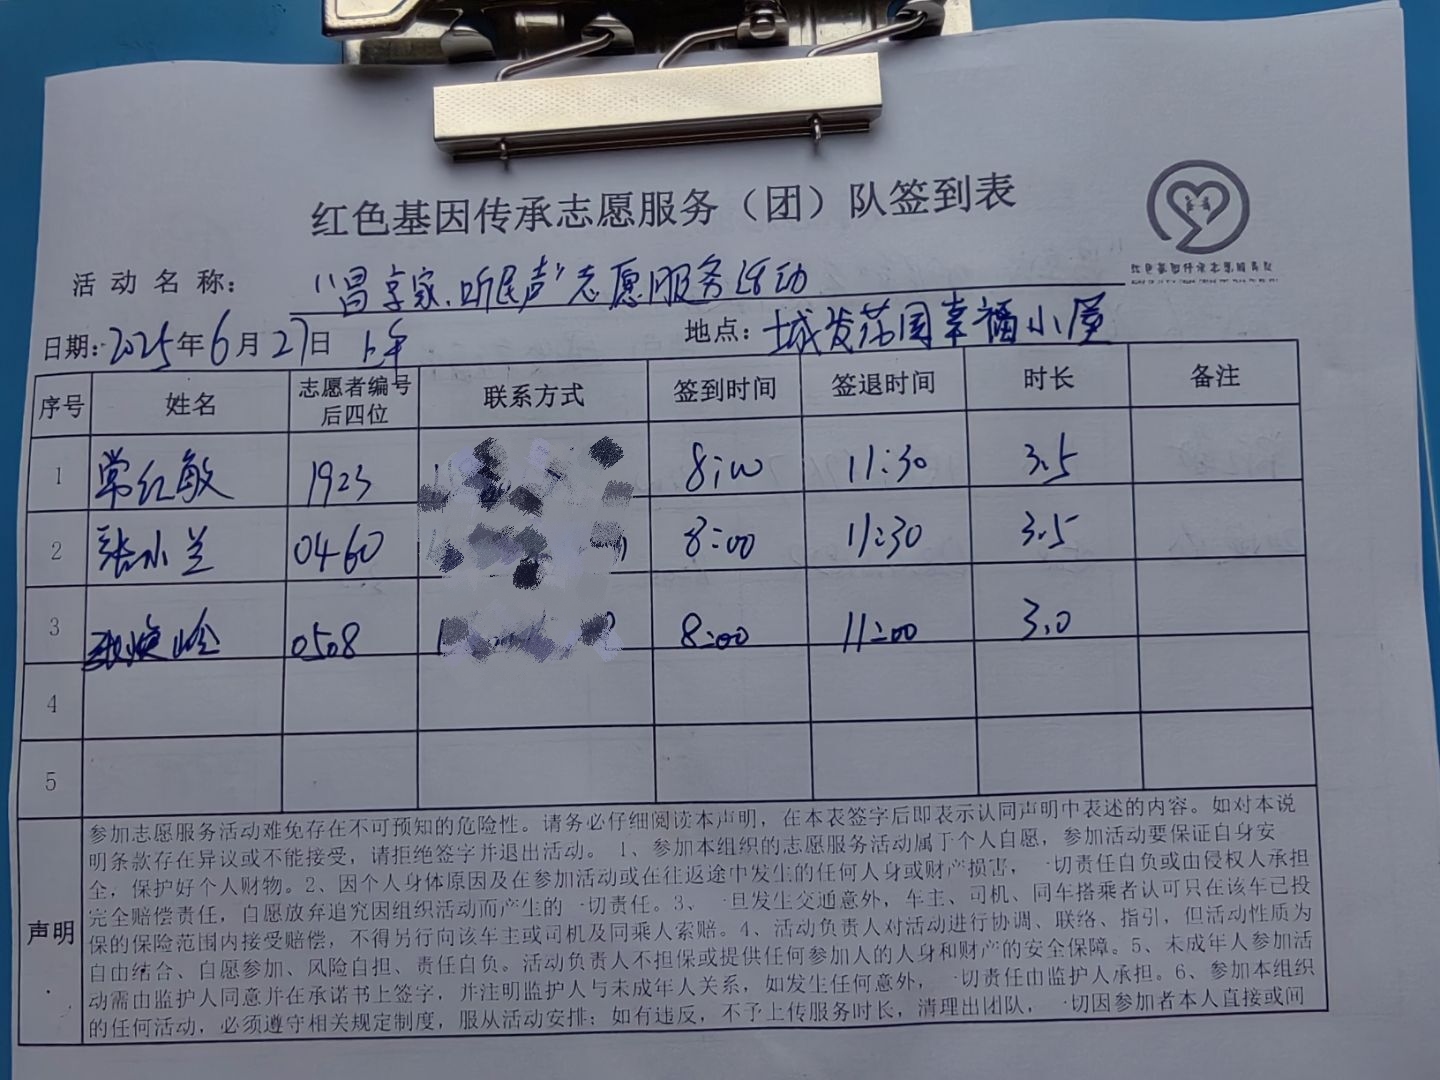 红色基因传承志愿服务（团）队签到表
活动名称： “昌享家，听民声”志愿服务活动
红色基因传承志愿服务队
日期：2025年6月27日 上午 地点：城发花园幸福小屋
序号 姓名 志愿者编号后四位 联系方式 签到时间 签退时间 时长 备注
1 常红敏 1923 8:00 11:30 3.5
2 张小兰 0460 8:00 11:30 3.5
3 0508 8:00 11:00 3.0
4
5
声明
参加志愿服务活动难免存在不可预知的危险性。请务必仔细阅读本声明，在本表签字后即表示认同声明中表述的内容。如对本说
明条款存在异议或不能接受，请拒绝签字并退出活动。 1、参加本组织的志愿服务活动属于个人自愿，参加活动要保证自身安
全，保护好个人财物。2、因个人身体原因及在参加活动或在往返途中发生的任何人身或财产损害，一切责任自负或由侵权人承担
完全赔偿责任，自愿放弃追究因组织活动而产生的一切责任。3、一旦发生交通意外，车主、司机、同车搭乘者认可只在该车已投
保的保险范围内接受赔偿，不得另行向该车主或司机及同乘人索赔。4、活动负责人对活动进行协调、联络、指引，但活动性质为
自由结合、自愿参加、风险自担、责任自负。活动负责人不担保或提供任何参加人的人身和财产的安全保障。5、未成年人参加活
动需由监护人同意并在承诺书上签字，并注明监护人与未成年人关系，如发生任何意外，一切责任由监护人承担。6、参加本组织
的任何活动，必须遵守相关规定制度，服从活动安排；如有违反，不予上传服务时长，清理出团队，一切因参加者本人直接或间